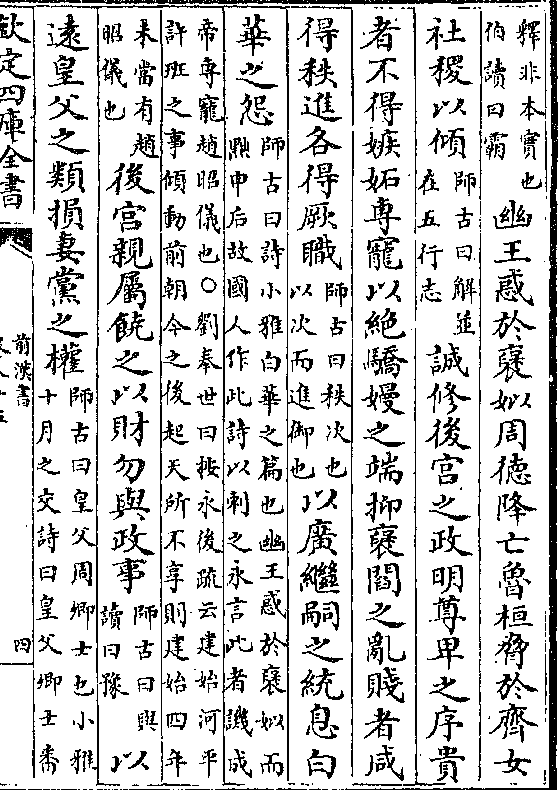 釋非本實也
伯讀曰霸
幽王惑於褒姒周德降亡魯桓脅於齊女
社稷以傾
師古曰解並
在五行志
誠修後宮之政明尊卑之序貴
者不得嫉妬専寵以絶驕嫚之端抑褒閻之亂賤者咸
得秩進各得厥職
師古曰秩次也
以次而進御也
以廣繼嗣之統息白
華之怨
師古曰詩小雅白華之篇也幽王惑於褒姒而
黜申后故國人作此詩以刺之永言此者譏成
帝専寵趙昭儀也○劉奉世曰按永後疏云建始河平
許班之事傾動前朝今之後起天所不享則建始四年
未當有趙
昭儀也
後宮親屬饒之以財勿與政事
師古曰與
讀曰豫
以
逺皇父之類損妻黨之權
師古曰皇父周卿士也小雅
十月之交詩曰皇父卿士番
欽定四庫全書
前漢書
四